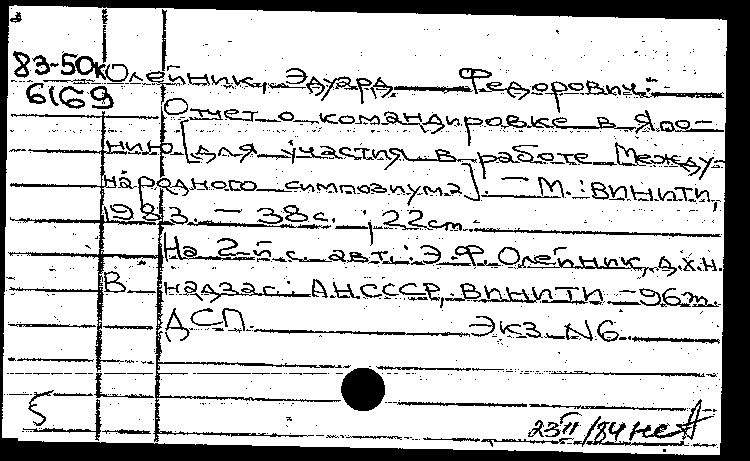 83-50к Олейник, Эдуард Федорович.
6169
Отчет о командировке в Япо-
нию [для участия в работе Между-
народного симпозиума]. — М. : ВИНИТИ,
1983. — 38 с. ; 22 см.
На 2-й с. авт.: Э.Ф. Олейник, д.х.н.
В надзаг.: АН СССР, ВИНИТИ — 96 т.
ДСП. Экз. N6
5
23 II /84